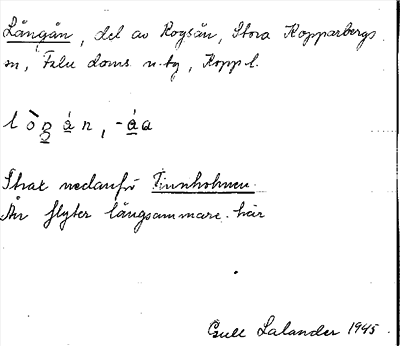 Långån, del av Rogsån, Stora Kopparbergs
sn, Falu doms. n. tg, Koppl.
l ò n á n, -á a
Strax nedanför Finnholmen.
Ån flyter långsammare här
Gull Lalander 1945